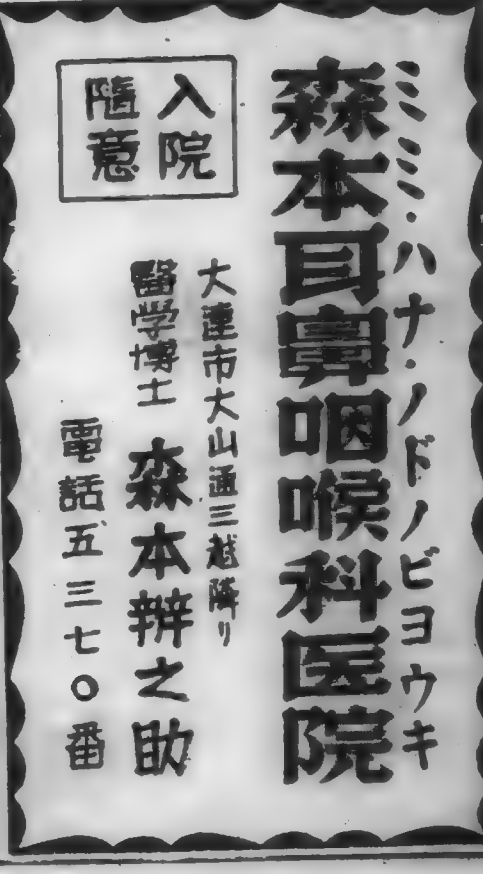 ミミ・ハナ・ノドノビヨウキ
森本耳鼻咽喉科医院
入院
隨意
大連市大山通三越隣リ
醫学博士 森本辦之助
電話五三七〇番